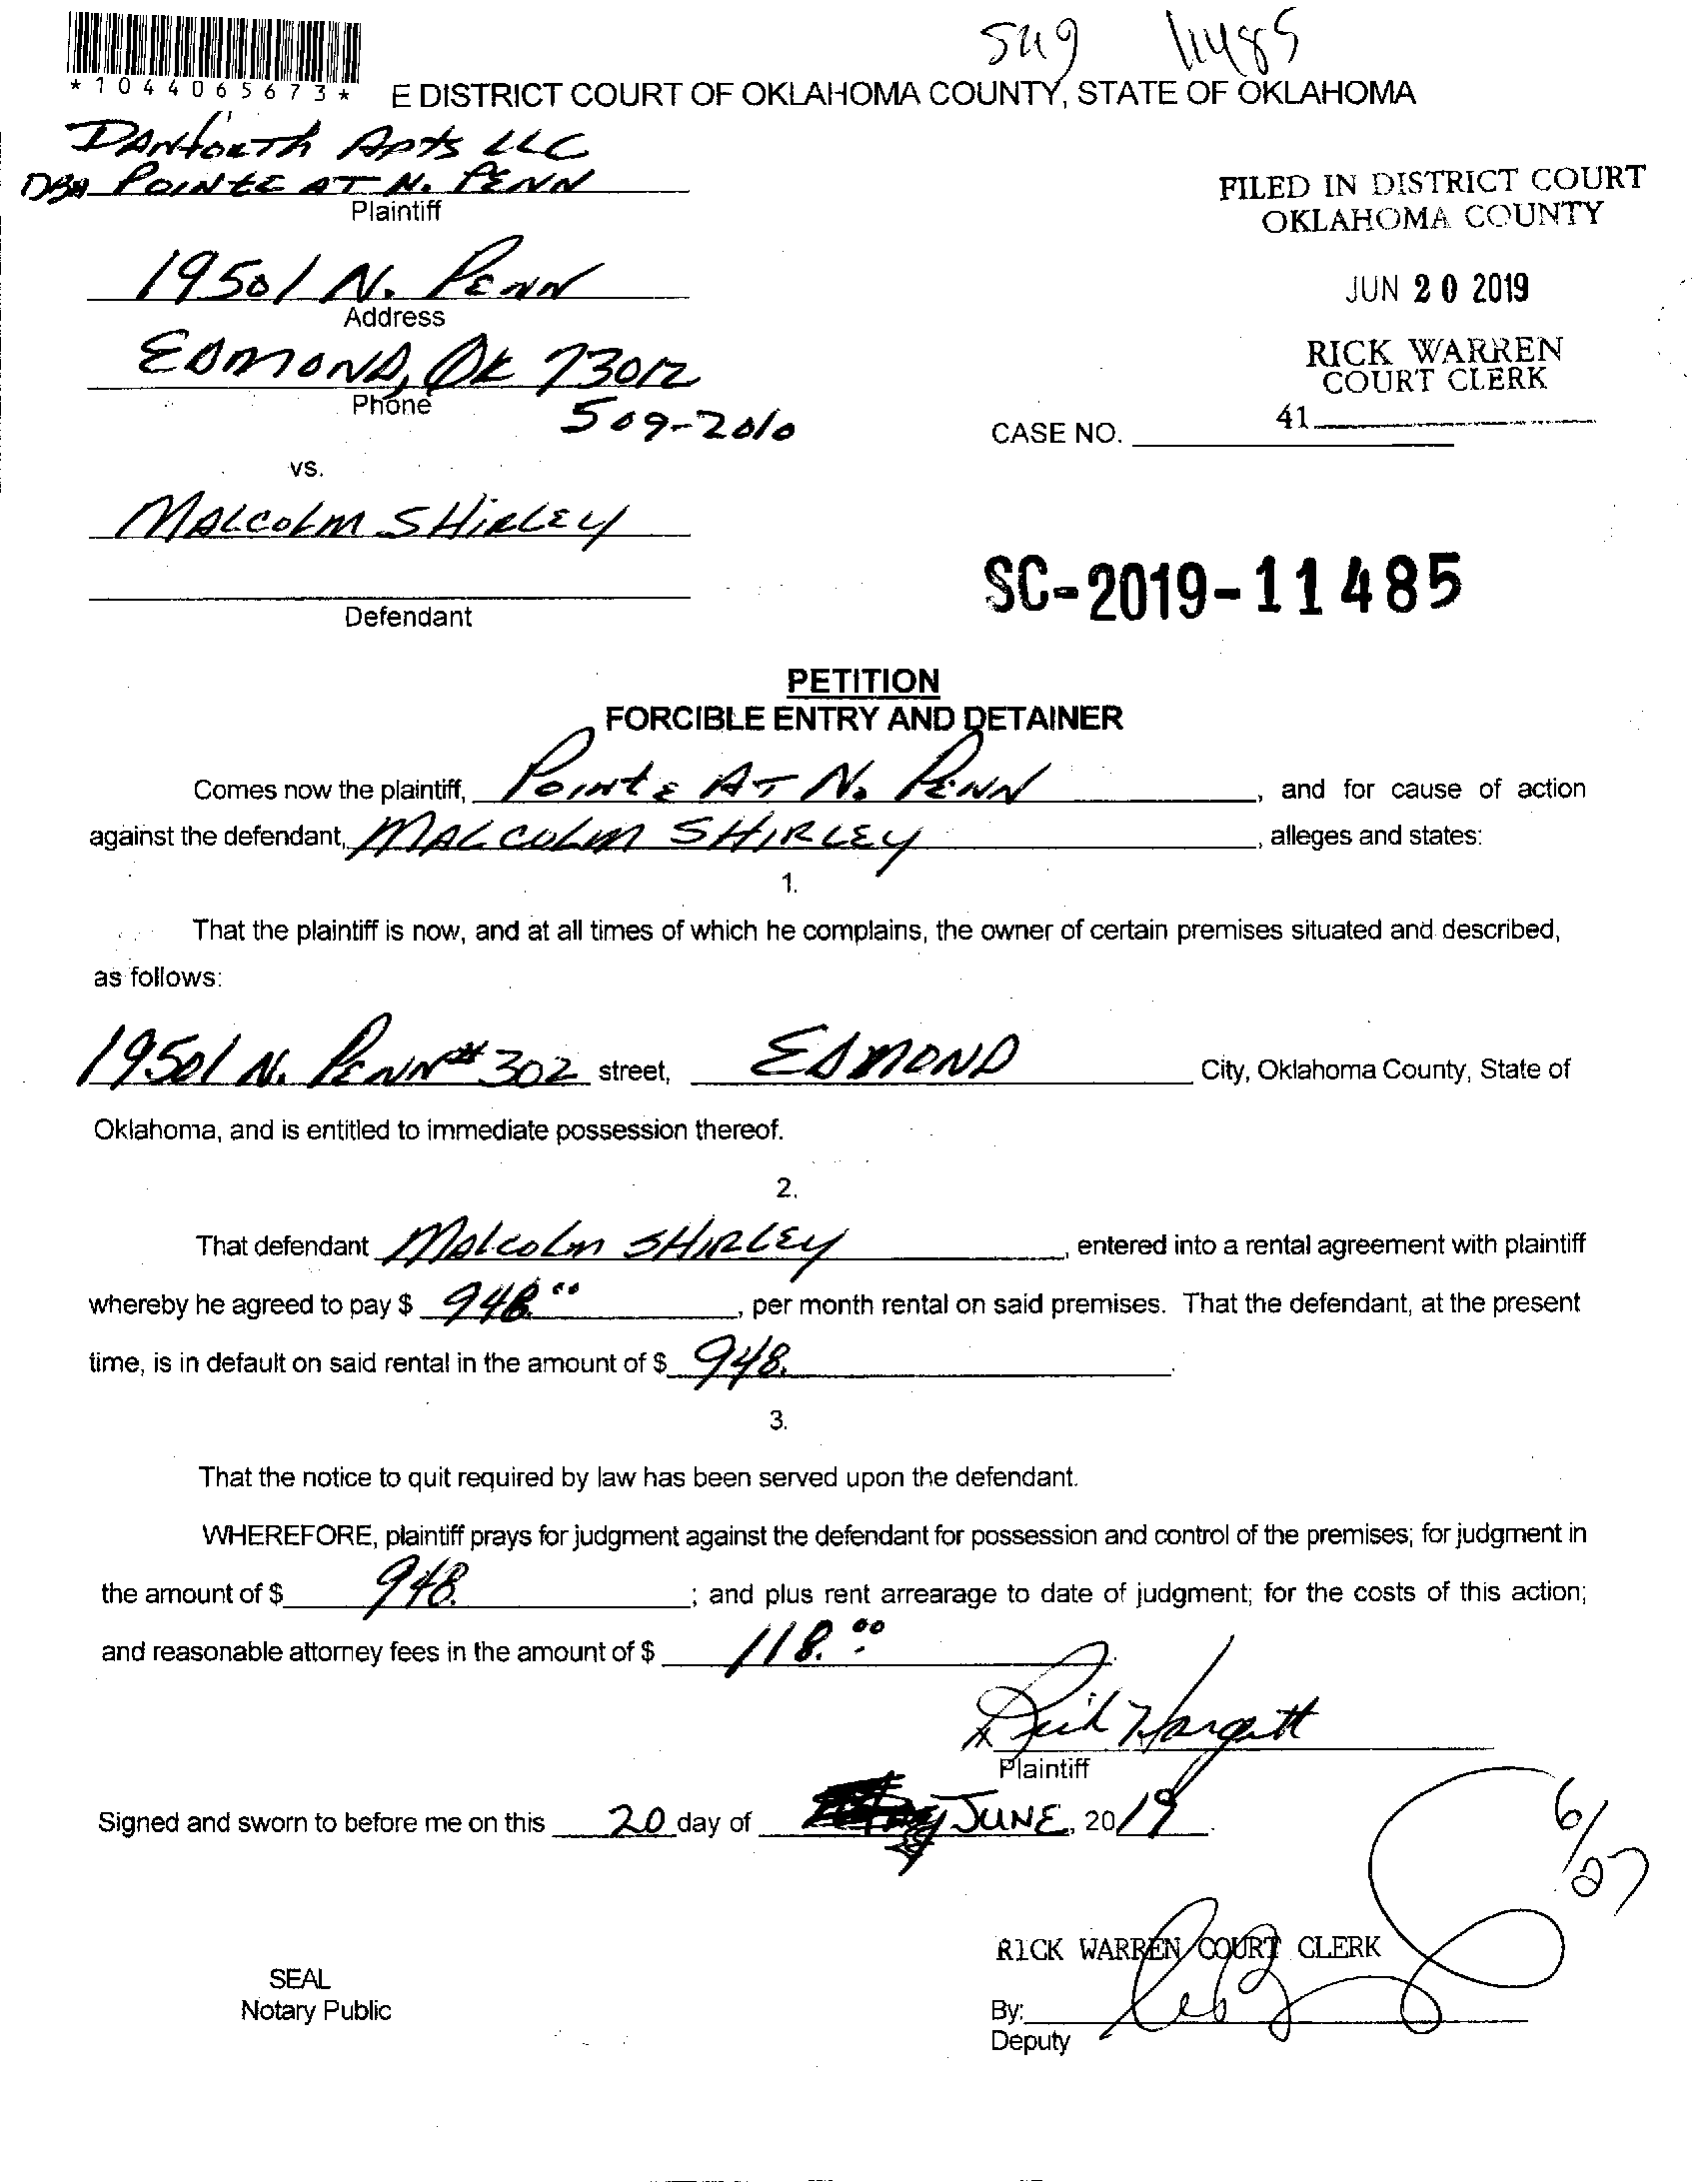 511485
*1044065673*
E DISTRICT COURT OF OKLAHOMA COUNTY, STATE OF OKLAHOMA
DANFORTH APTS LLC
DBA POINTE AT N. PENN
Plaintiff
FILED IN DISTRICT COURT
OKLAHOMA COUNTY
19501 N. PENN
Address
JUN 20 2019
EDMOND, OK 73012
Phone
509-2010
RICK WARREN
COURT CLERK
41
CASE NO.
vs.
MALCOLM SHIRLEY
Defendant
SC-2019-11485
PETITION
FORCIBLE ENTRY AND DETAINER
Comes now the plaintiff, POINTE AT N. PENN, and for cause of action
against the defendant, MALCOLM SHIRLEY, alleges and states:
1.
That the plaintiff is now, and at all times of which he complains, the owner of certain premises situated and described,
as follows:
19501 N. PENN #302 street, EDMOND City, Oklahoma County, State of
Oklahoma, and is entitled to immediate possession thereof.
2.
That defendant MALCOLM SHIRLEY, entered into a rental agreement with plaintiff
whereby he agreed to pay $ 948.00, per month rental on said premises. That the defendant, at the present
time, is in default on said rental in the amount of $ 948.
3.
That the notice to quit required by law has been served upon the defendant.
WHEREFORE, plaintiff prays for judgment against the defendant for possession and control of the premises; for judgment in
the amount of $ 948.; and plus rent arrearage to date of judgment; for the costs of this action;
and reasonable attorney fees in the amount of $ 118.00.
Plaintiff
Signed and sworn to before me on this 20 day of JUNE, 2019.
6/27
RICK WARREN COURT CLERK
SEAL
Notary Public
By:
Deputy